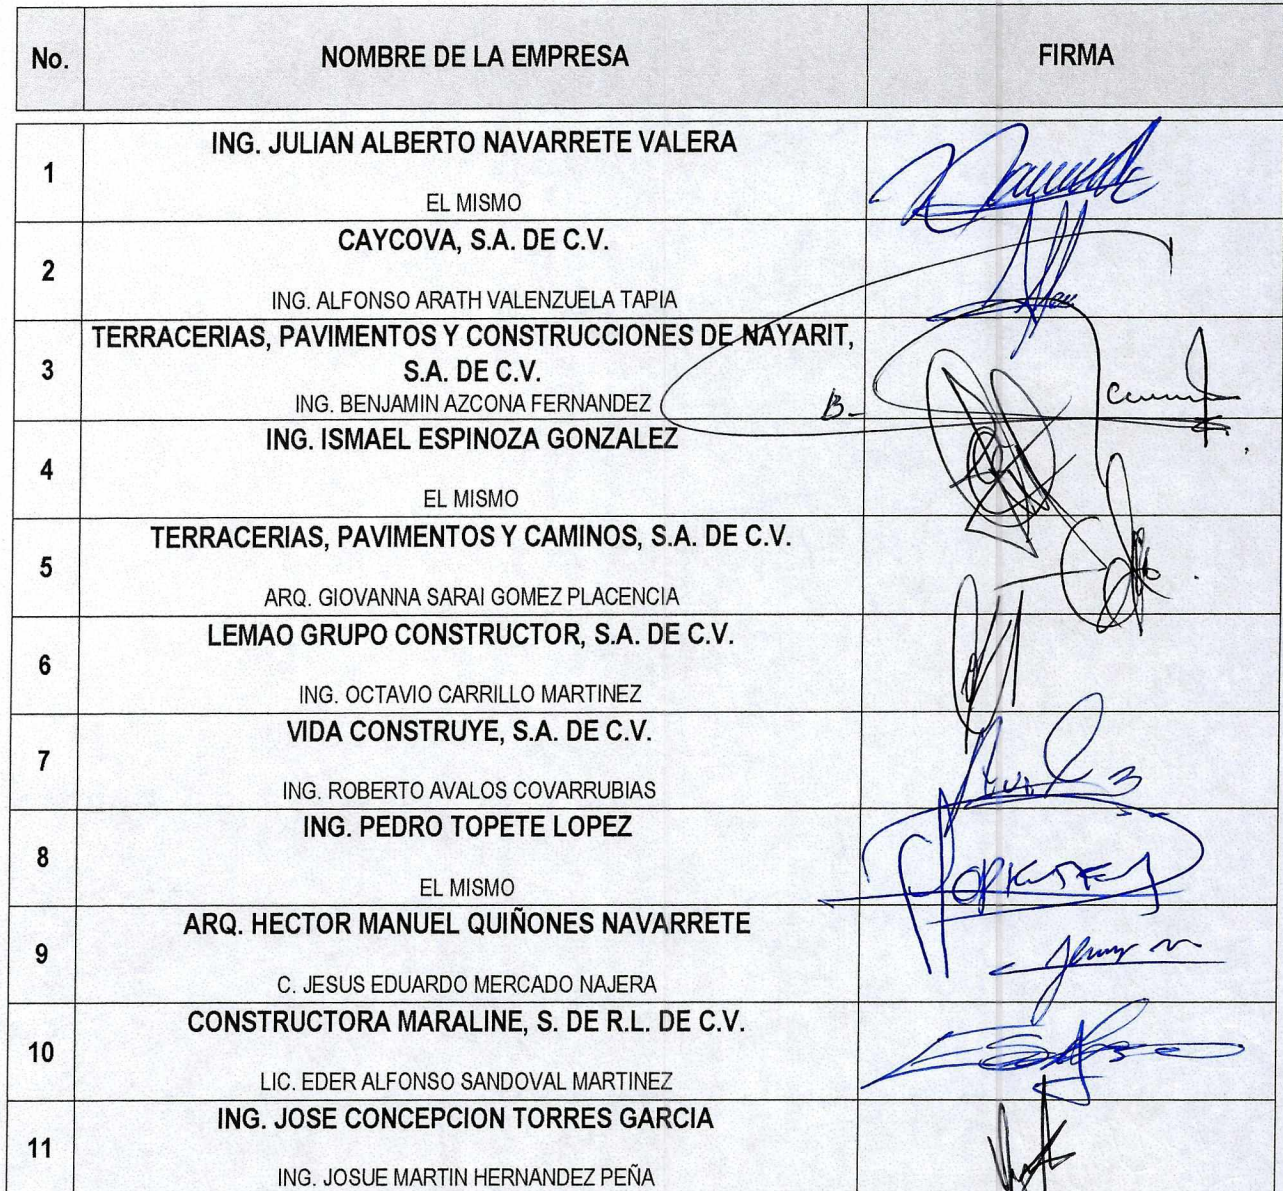 No. NOMBRE DE LA EMPRESA FIRMA
ING. JULIAN ALBERTO NAVARRETE VALERA
1
EL MISMO
CAYCOVA, S.A. DE C.V.
2
ING. ALFONSO ARATH VALENZUELA TAPIA
TERRACERIAS, PAVIMENTOS Y CONSTRUCCIONES DE NAYARIT,
3 S.A. DE C.V.
ING. BENJAMIN AZCONA FERNANDEZ
ING. ISMAEL ESPINOZA GONZALEZ
4
EL MISMO
TERRACERIAS, PAVIMENTOS Y CAMINOS, S.A. DE C.V.
5
ARQ. GIOVANNA SARAI GOMEZ PLACENCIA
LEMAO GRUPO CONSTRUCTOR, S.A. DE C.V.
6
ING. OCTAVIO CARRILLO MARTINEZ
VIDA CONSTRUYE, S.A. DE C.V.
7
ING. ROBERTO AVALOS COVARRUBIAS
ING. PEDRO TOPETE LOPEZ
8
EL MISMO
ARQ. HECTOR MANUEL QUIÑONES NAVARRETE
9
C. JESUS EDUARDO MERCADO NAJERA
CONSTRUCTORA MARALINE, S. DE R.L. DE C.V.
10
LIC. EDER ALFONSO SANDOVAL MARTINEZ
ING. JOSE CONCEPCION TORRES GARCIA
11
ING. JOSUE MARTIN HERNANDEZ PEÑA